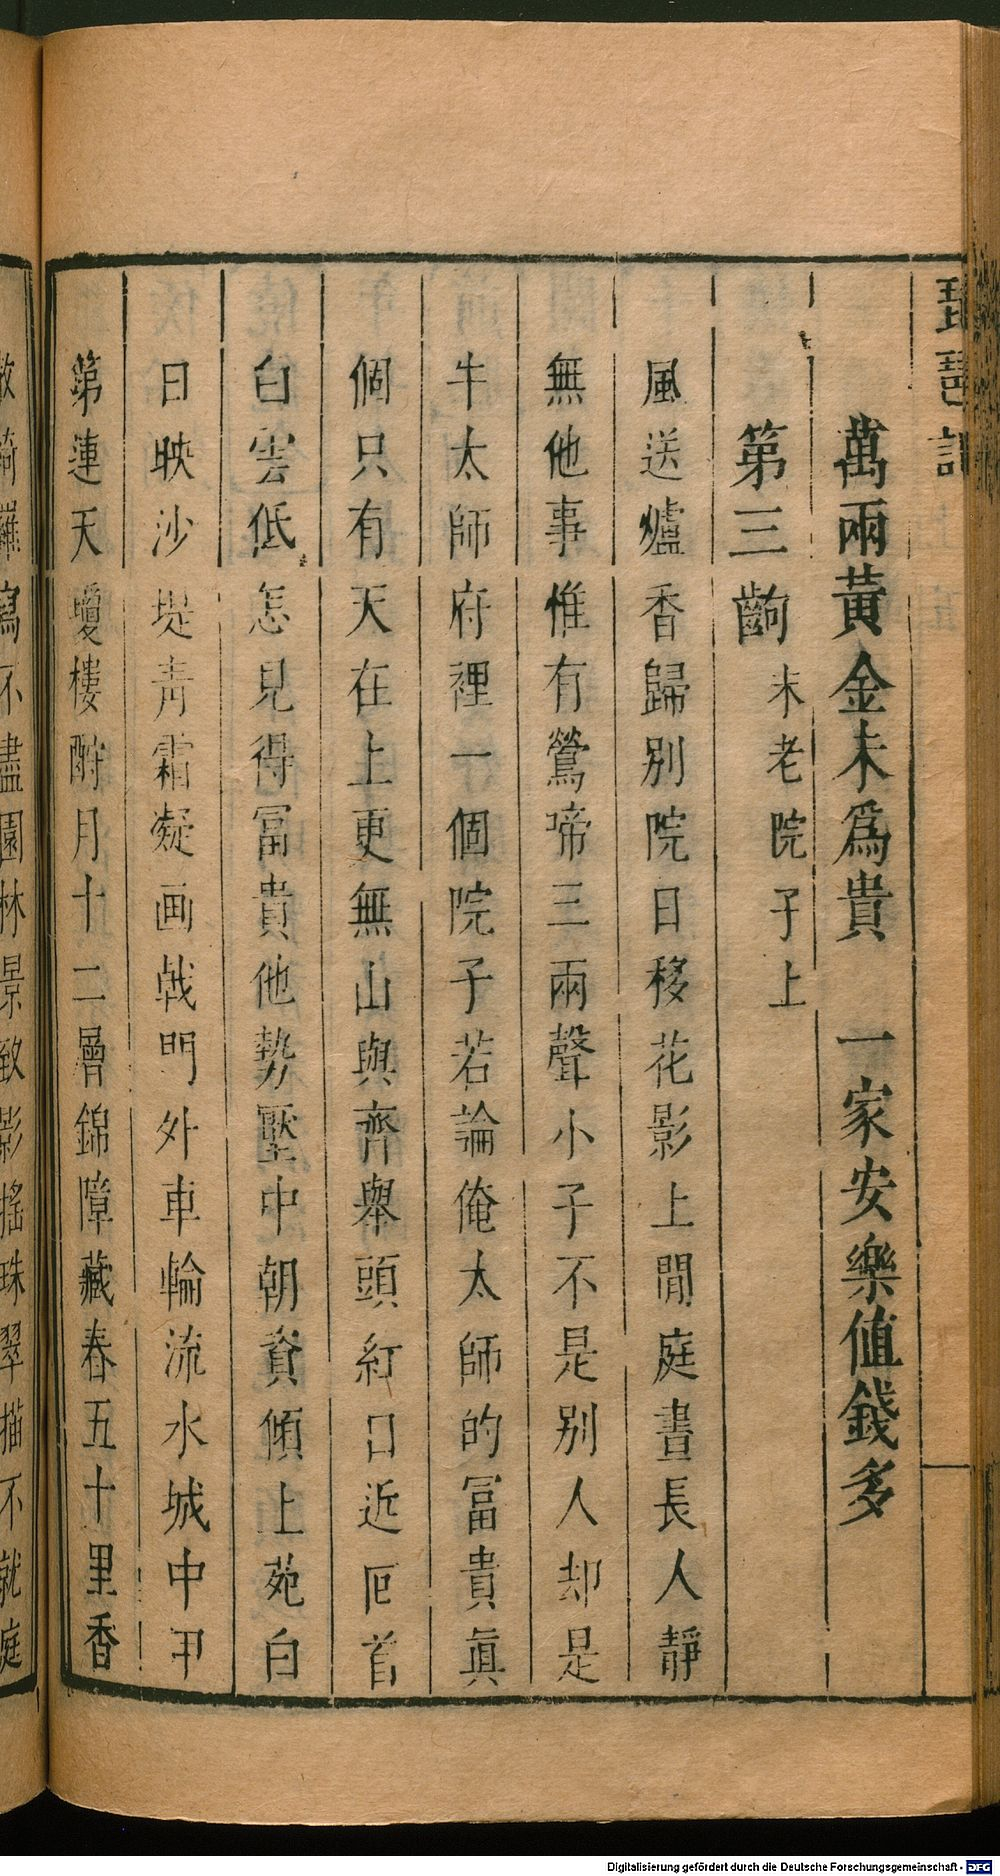 琵琶記
萬兩黃金未為貴　一家安樂值錢多
第三齣 末老院子上
風送爐香歸別院日移花影上閒庭晝長人靜
無他事惟有鶯啼三兩聲小子不是別人却是
牛太師府裡一個院子若論俺太師的冨貴眞
個只有天在上更無山與齊舉頭紅日近囘首
白雲低怎見得冨貴他勢壓中朝資傾上苑白
日映沙堤青霜凝画戟門外車輪流水城中甲
第連天瓊樓酧月十二層錦障藏春五十里香
散綺羅寫不盡園林景致影搖珠翠描不就庭
Digitalisierung gefördert durch die Deutsche Forschungsgemeinschaft - DFG